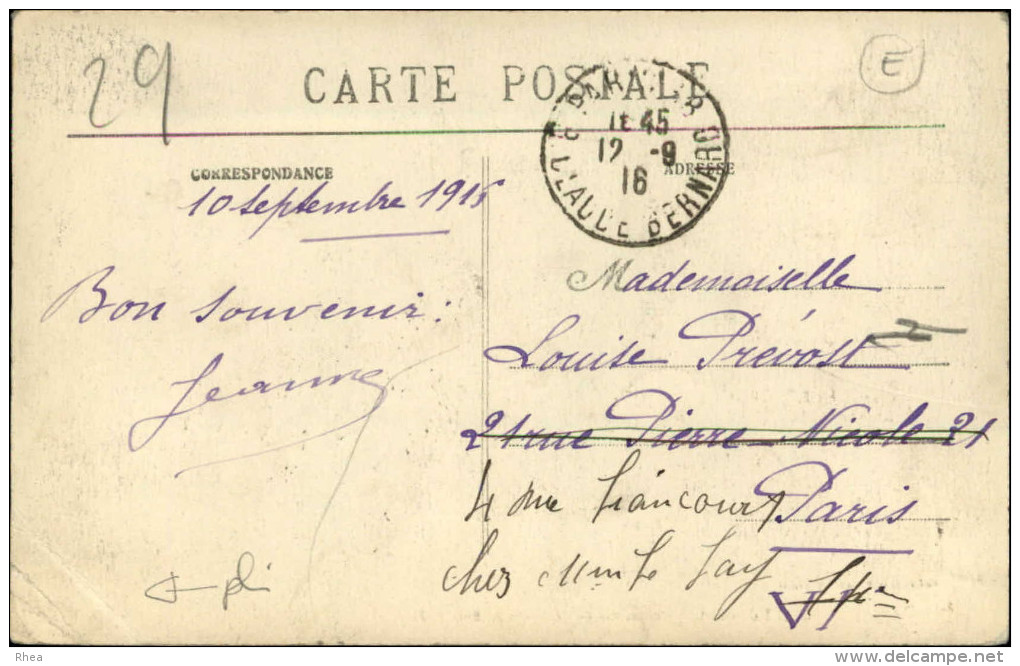 29
E
CARTE POSTALE
1E 45
12 -9
16
R. CLAUDE BERNARD
CORRESPONDANCE
ADRESSE
10 septembre 1916
Bon souvenir:
Jeanne
Mademoiselle
Louise Prévost
21 rue Pierre-Nicole 21
4 rue Liancourt
Paris
chez
Rhea
www.delcampe.net